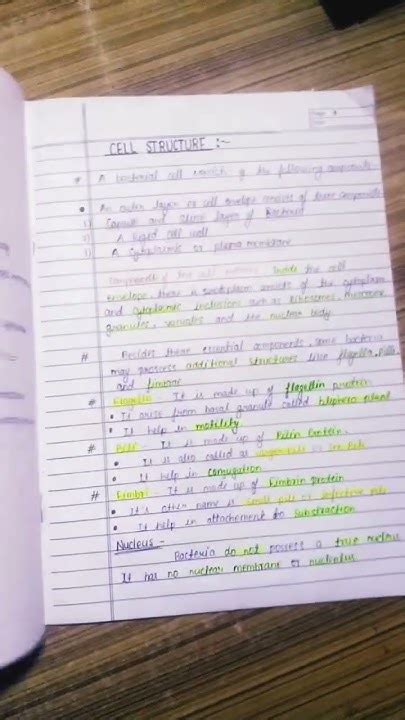 CELL STRUCTURE :-
* A bacterial cell consist of the following components
• An outer layer or cell envelope consists of three components
1) Capsule and slime layer of Bacteria
2) A rigid cell wall
3) A cytoplasmic or plasma membrane
Components of the cell Inside the cell
envelope there is cytoplasm consits of the cytoplasm
and cytoplasmic inclusions such as Ribosomes, mesosome
granules, vacuoles and the nuclear body
# Besides these essential components, some bacteria
may possess additional structures like flagella, pilli
and fimbrae
# Flagella - It is made up of flagellin protein
• It arise from basal granule called
• It help in motility
# Pilli - It is made up of Pilin Protein.
• It is also called as or sex pili
• It help in conjugation
# Fimbri - It is made up of Fimbrin protein
• It's other name is pili or pili
• It help in attachement to Substraction
Nucleus -
Bacteria do not possess a true nucleus
It has no nuclear membrane or nucleolus